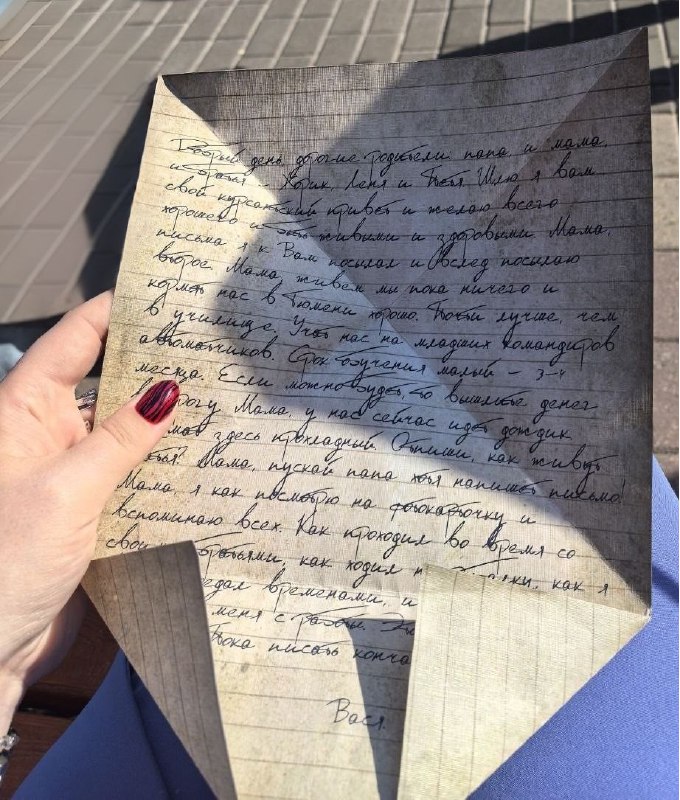 Добрый день, дорогие родители папа, и мама,
и братья - Жорик, Леня и Витя Шлю я вам
свой курсантский привет и желаю всего
хорошего и живыми и здоровыми. Мама,
письма я к Вам посылал и вслед посылаю
второе. Мама, живем мы пока ничего и
кормят нас в Тюмени хорошо. Почти лучше, чем
в училище. Учат нас на младших командиров
автоматчиков. Срок обучения малый - 3-4
месяца. Если можно будет то вышлите денег
дорогу Мама, у нас сейчас идет дождик
здесь прохладный. Отпиши, как живут
Мама, пускай папа хотя напишет письмо!
Мама, я как посмотрю на фотокарточку и
вспоминаю всех. Как проходил во время со
свои братьями, как ходил н как я
едал временами, и
меня с работы.
Пока писать конча
Вася.